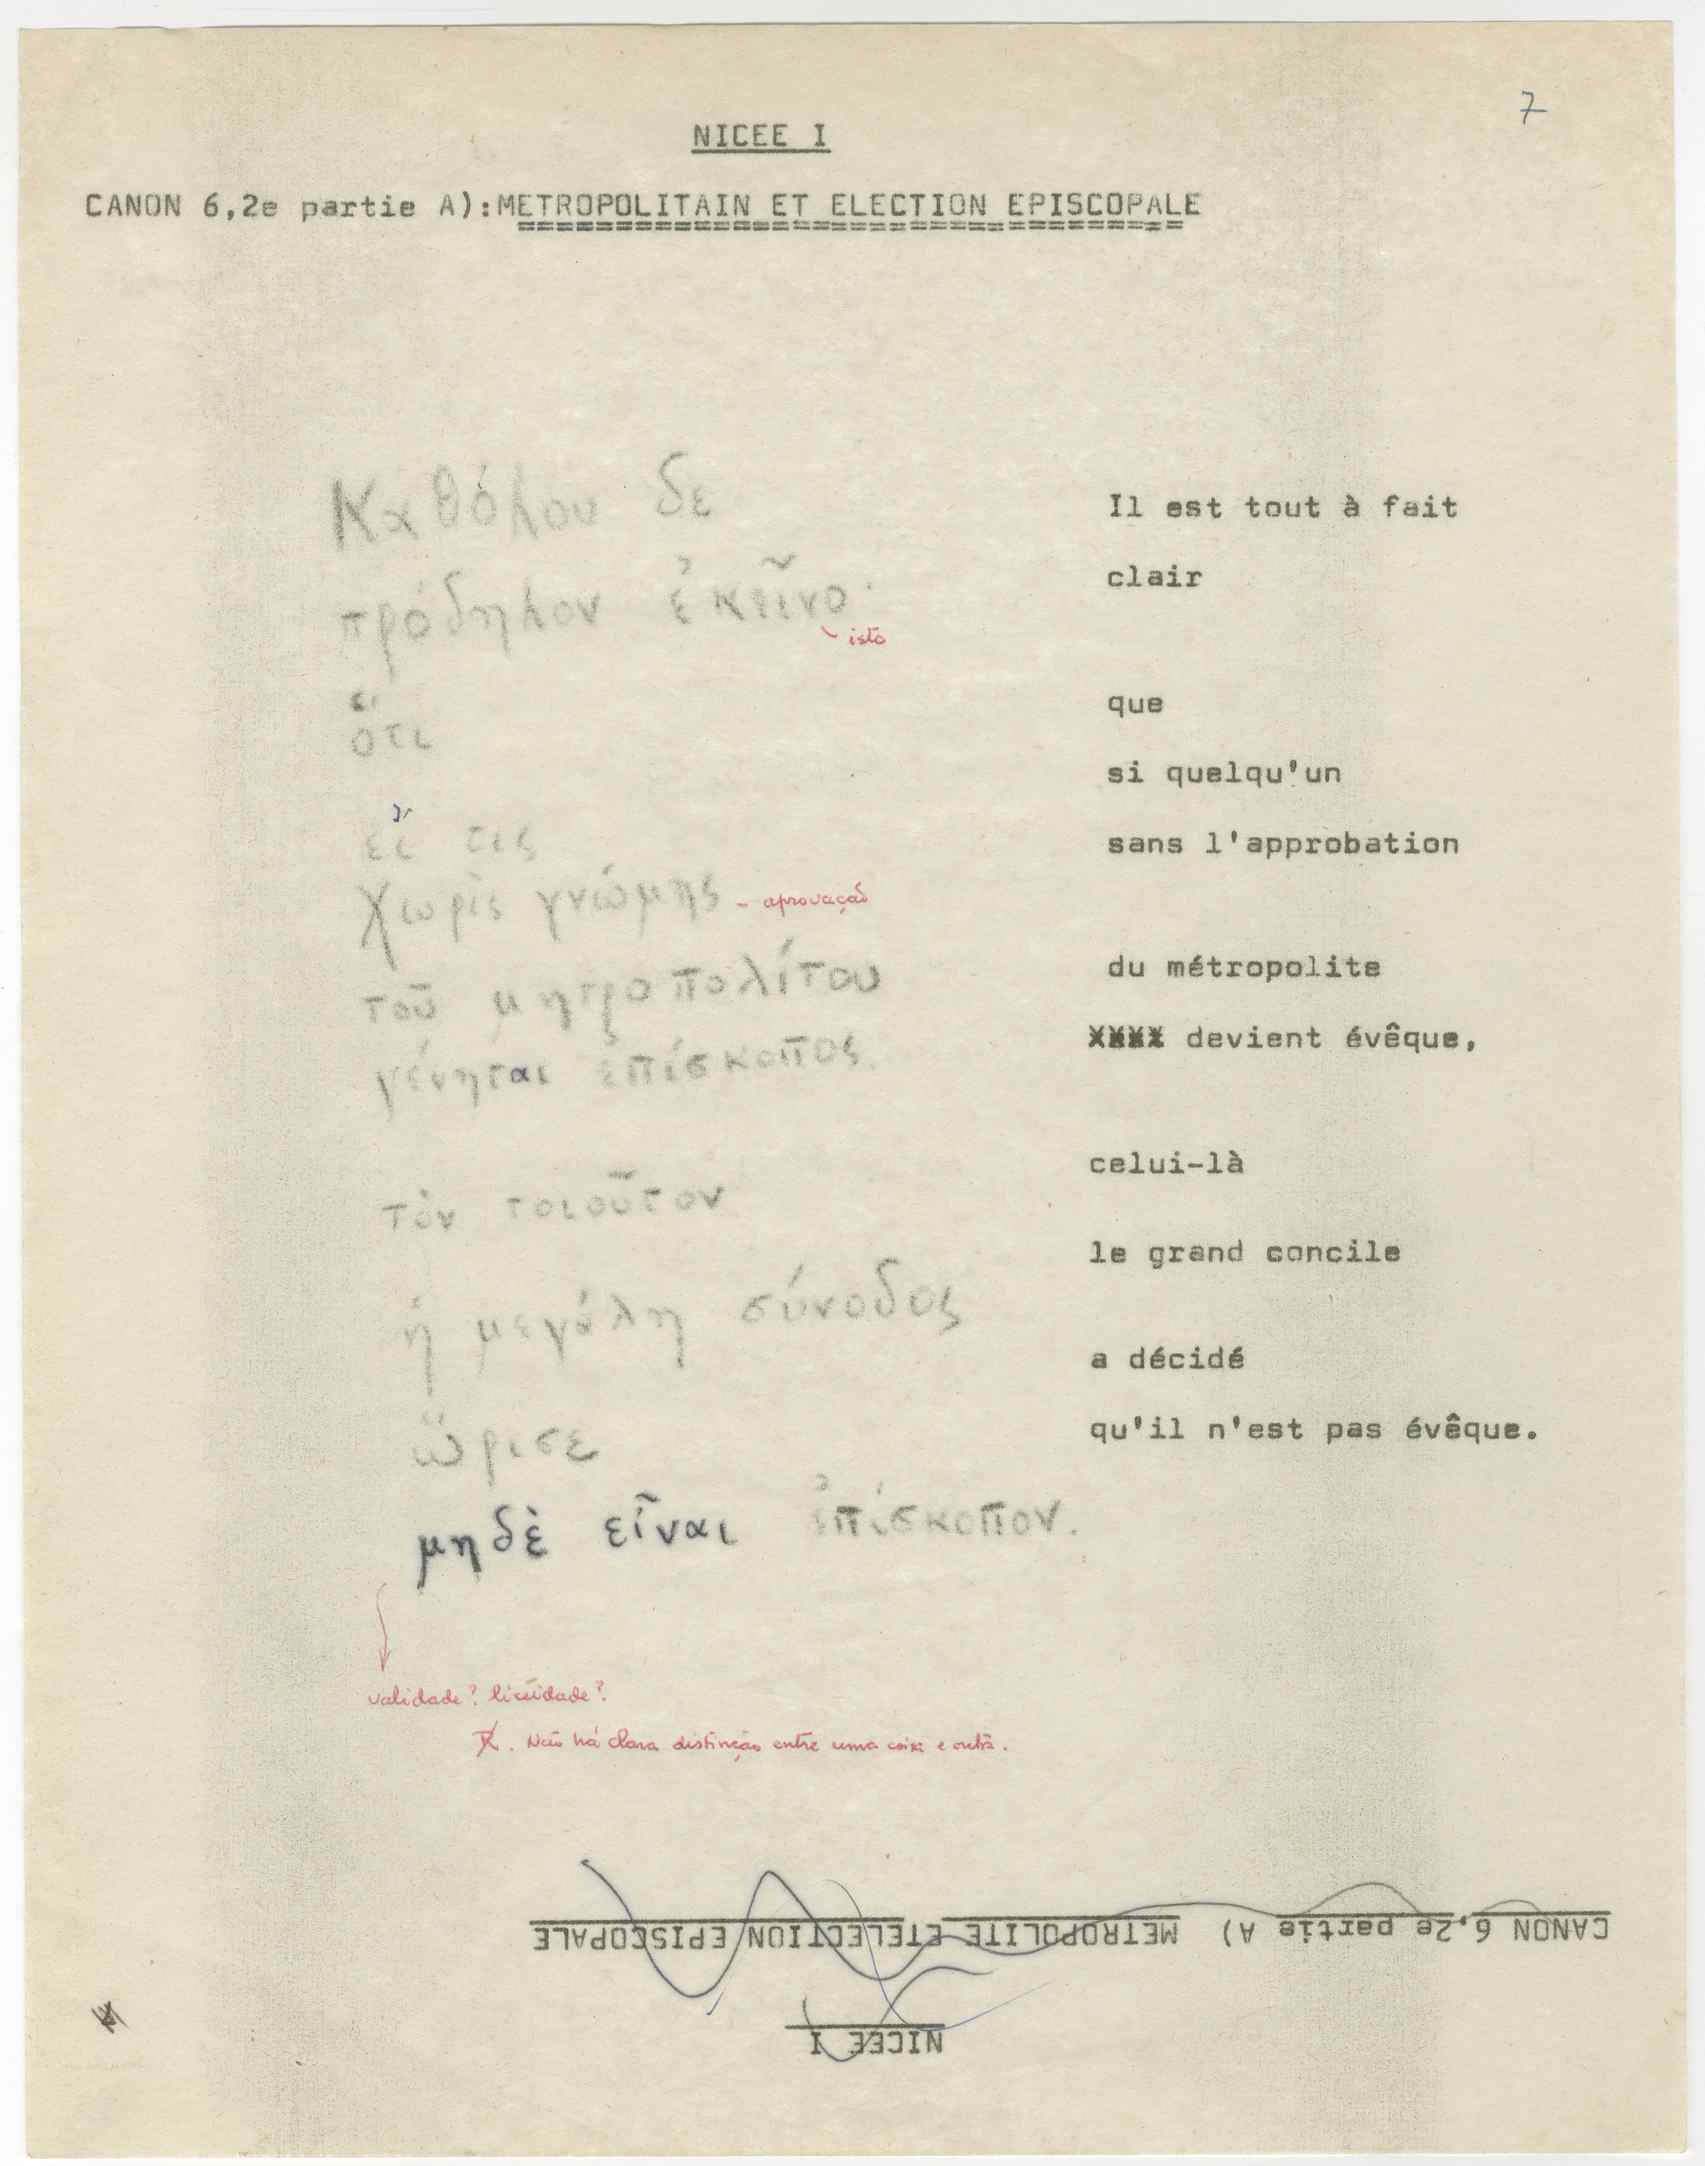 7
NICEE I
CANON 6,2e partie A):METROPOLITAIN ET ELECTION EPISCOPALE
Καθόλου δε
Il est tout à fait
πρόδηλον ἐκεῖνο·
clair
isto
ὅτι
que
si quelqu'un
εἴ τις
sans l'approbation
χωρὶς γνώμης - aprovação
τοῦ μητροπολίτου
du métropolite
γένηται ἐπίσκοπος.
devient évêque,
τὸν τοιοῦτον
celui-là
ἡ μεγάλη σύνοδος
le grand concile
ὥρισε
a décidé
μηδὲ εἶναι ἐπίσκοπον.
qu'il n'est pas évêque.
validade? liceidade?
R. Não há clara distinção entre uma coisa e outra.
CANON 6,2e partie A) METROPOLITE ETELECTION EPISCOPALE
NICEE I